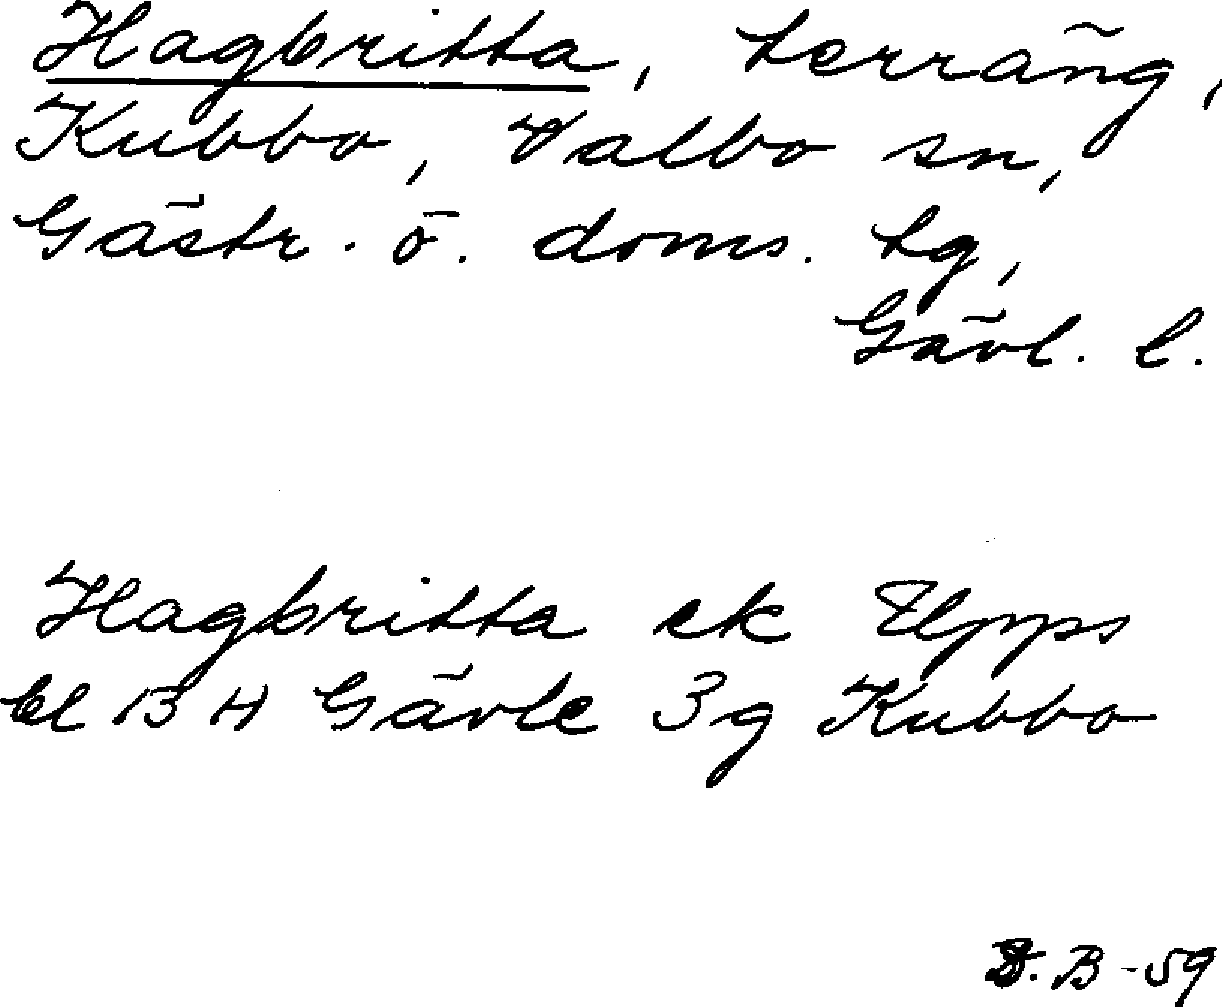 Hagbritta, terräng,
Kubbo, Valbo sn,
Gästr. ö. doms. tg,
Gävl. l.
Hagbritta ek Upps
bl 13 H Gävle 3g Kubbo
B -59